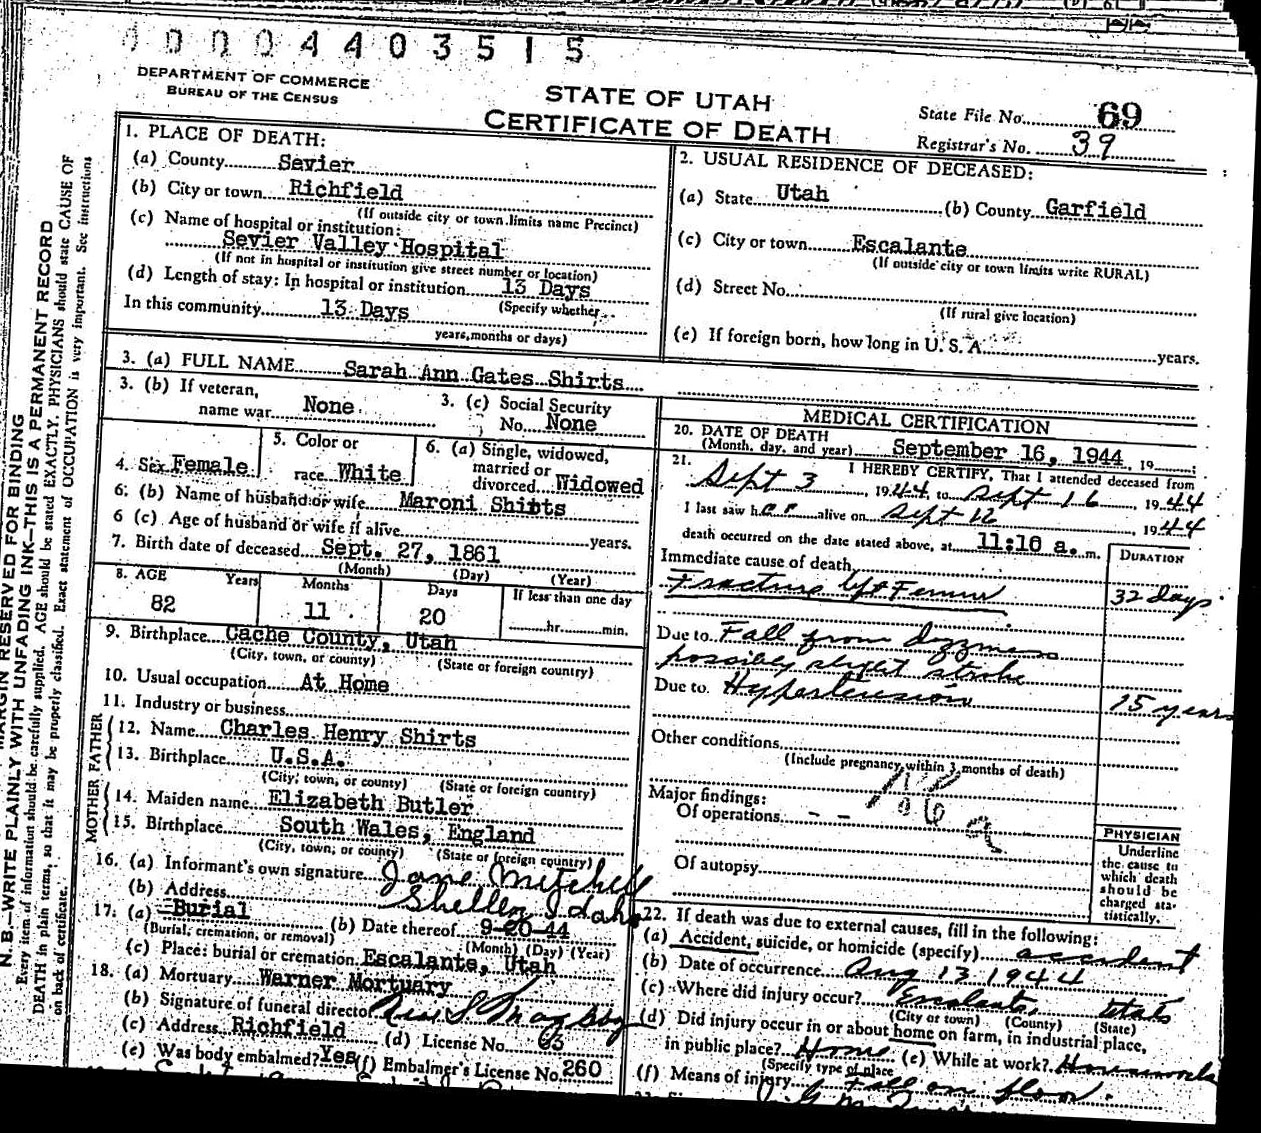 00004403515
DEPARTMENT OF COMMERCE
BUREAU OF THE CENSUS
STATE OF UTAH
CERTIFICATE OF DEATH
State File No. 69
Registrar's No. 39
1. PLACE OF DEATH:
(a) County Sevier
(b) City or town Richfield
(If outside city or town limits name Precinct)
(c) Name of hospital or institution:
Sevier Valley Hospital
(If not in hospital or institution give street number or location)
(d) Length of stay: In hospital or institution 13 Days
(Specify whether
In this community 13 Days
years, months or days)
2. USUAL RESIDENCE OF DECEASED:
(a) State Utah (b) County Garfield
(c) City or town Escalante
(If outside city or town limits write RURAL)
(d) Street No.
(If rural give location)
(e) If foreign born, how long in U. S. A. years.
3. (a) FULL NAME Sarah Ann Gates Shirts
3. (b) If veteran,
name war None
3. (c) Social Security
No. None
4. Sex Female
5. Color or
race White
6. (a) Single, widowed,
married or
divorced Widowed
6. (b) Name of husband or wife Maroni Shirts
6 (c) Age of husband or wife if alive years.
7. Birth date of deceased Sept. 27, 1861
(Month) (Day) (Year)
8. AGE Years Months Days If less than one day
82 11 20 hr. min.
9. Birthplace Cache County, Utah
(City, town, or county) (State or foreign country)
10. Usual occupation At Home
11. Industry or business
FATHER
12. Name Charles Henry Shirts
13. Birthplace U.S.A.
(City, town, or county) (State or foreign country)
MOTHER
14. Maiden name Elizabeth Butler
15. Birthplace South Wales, England
(City, town, or county) (State or foreign country)
16. (a) Informant's own signature Jane Mitchell
(b) Address Shelley Idaho
17. (a) Burial (b) Date thereof 9-20-44
(Burial, cremation, or removal) (Month) (Day) (Year)
(c) Place: burial or cremation Escalante, Utah
18. (a) Mortuary Warner Mortuary
(b) Signature of funeral director
(c) Address Richfield (d) License No. 63
(e) Was body embalmed? Yes (f) Embalmer's License No. 260
MEDICAL CERTIFICATION
20. DATE OF DEATH
(Month, day, and year) September 16, 1944, 19
21. I HEREBY CERTIFY, That I attended deceased from
Sept 3, 1944, to Sept 16, 1944
I last saw her alive on Sept 16 1944
death occurred on the date stated above, at 11:10 a. m.
DURATION
Immediate cause of death
Fracture left Femur 32 days
Due to Fall from dizzness
possibly slight stroke
Due to Hypertension 15 years
Other conditions
(Include pregnancy within 3 months of death)
186
a
Major findings:
Of operations - -
Of autopsy
PHYSICIAN
Underline
the cause to
which death
should be
charged sta-
tistically.
22. If death was due to external causes, fill in the following:
(a) Accident, suicide, or homicide (specify) accident
(b) Date of occurrence Aug 13 1944
(c) Where did injury occur? Escalante, Utah
(City or town) (County) (State)
(d) Did injury occur in or about home on farm, in industrial place,
in public place? Home (e) While at work? Housework
(Specify type of place
(f) Means of injury Fall on floor.
N. B.—WRITE PLAINLY WITH UNFADING INK—THIS IS A PERMANENT RECORD
MARGIN RESERVED FOR BINDING
Every item of information should be carefully supplied. AGE should be stated EXACTLY. PHYSICIANS should state CAUSE OF
DEATH in plain terms, so that it may be properly classified. Exact statement of OCCUPATION is very important. See instructions
on back of certificate.